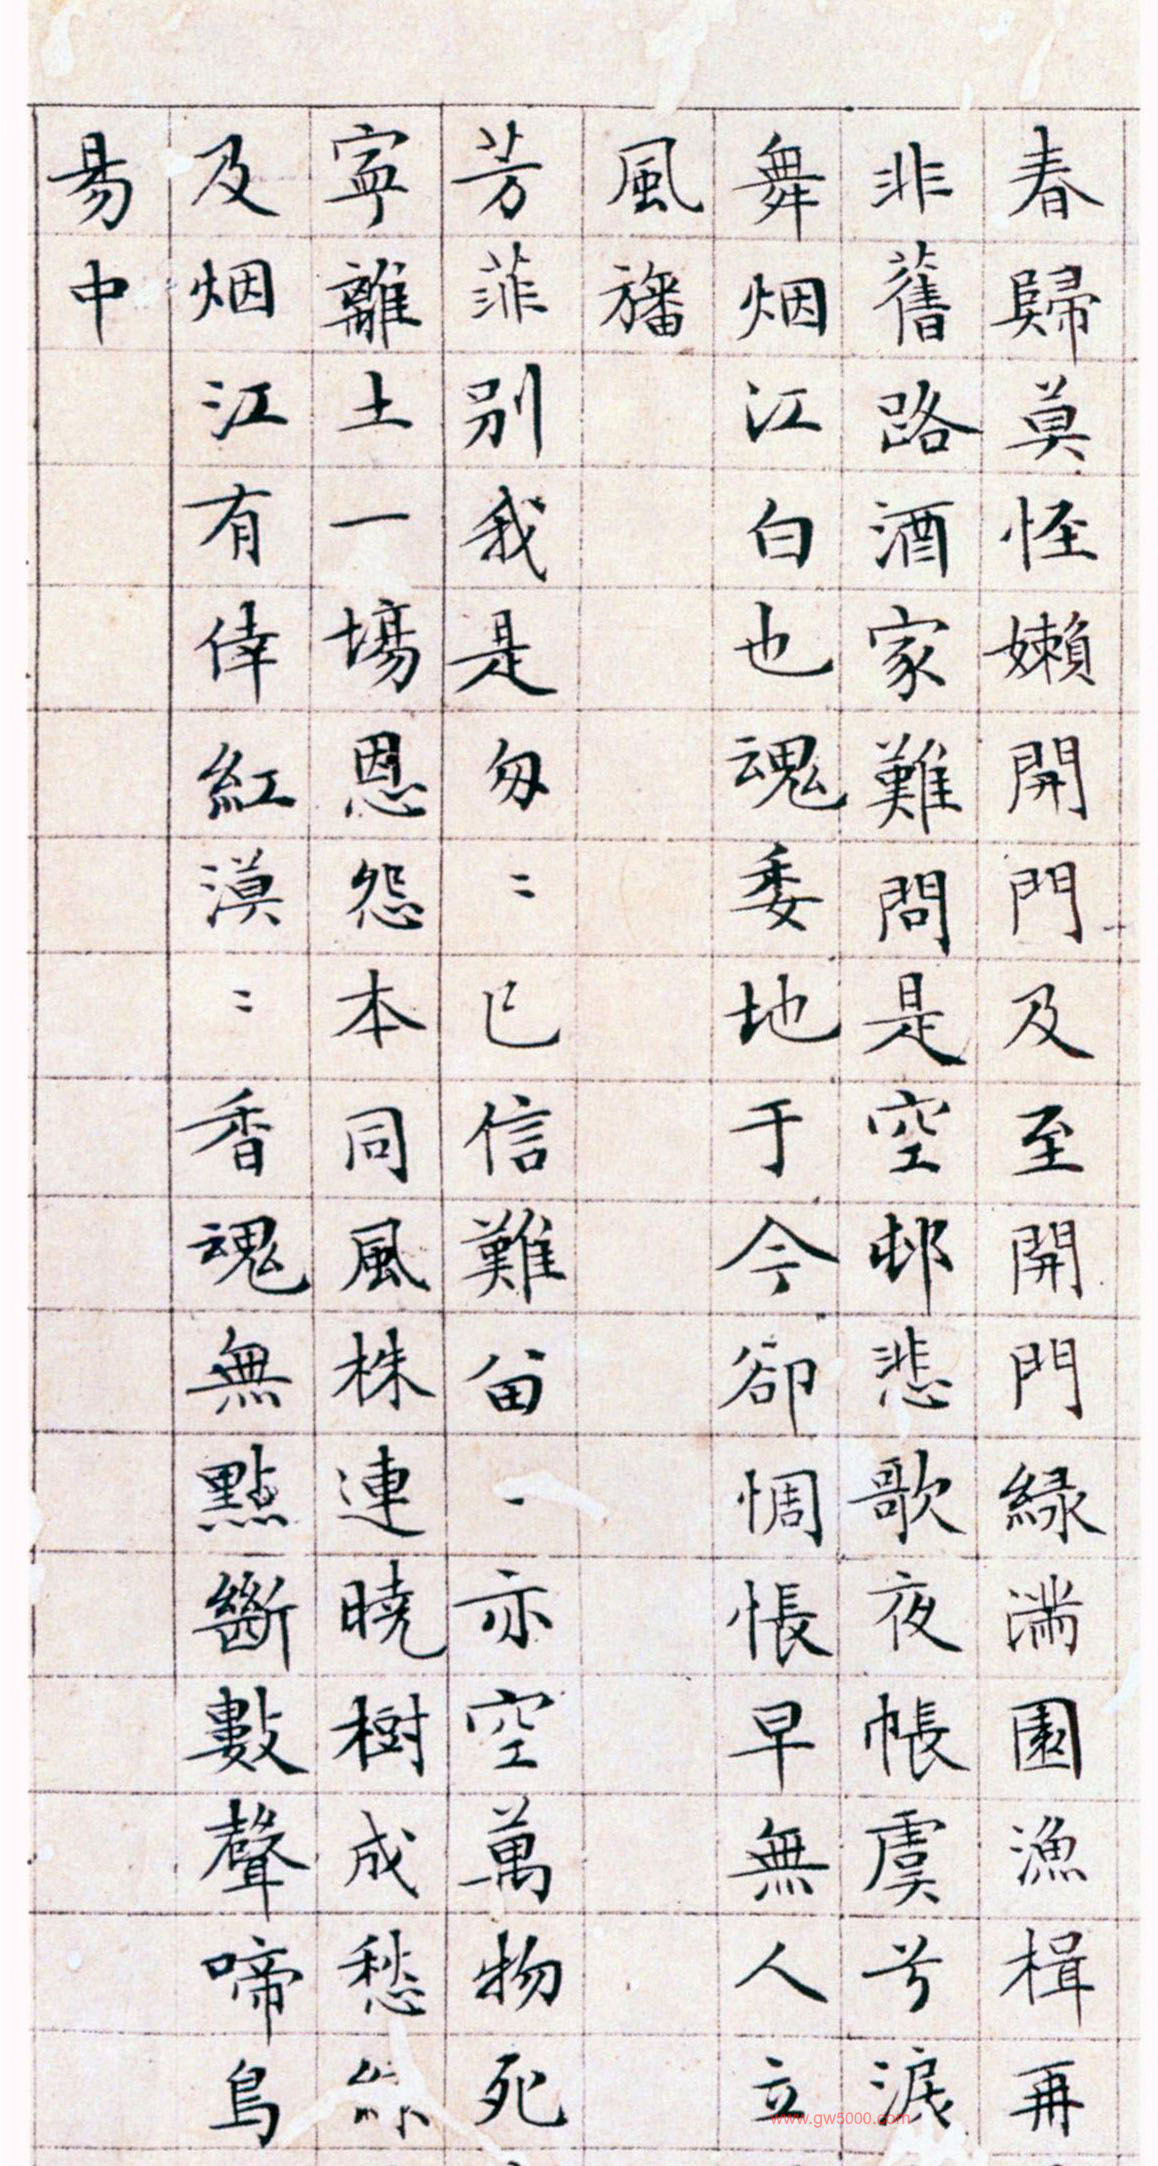 春歸莫怪嬾開門及至開門緑滿園漁楫再
非舊路酒家難問是空邨悲歌夜帳虞兮淚
舞烟江白也魂委地于今卻惆悵早無人立
風旛
芳菲別我是匆〻已信難留一亦空萬物死
寧離土一場恩怨本同風株連曉樹成愁
及烟江有倖紅漠〻香魂無點斷數聲啼鳥
易中
www.gw5000.com